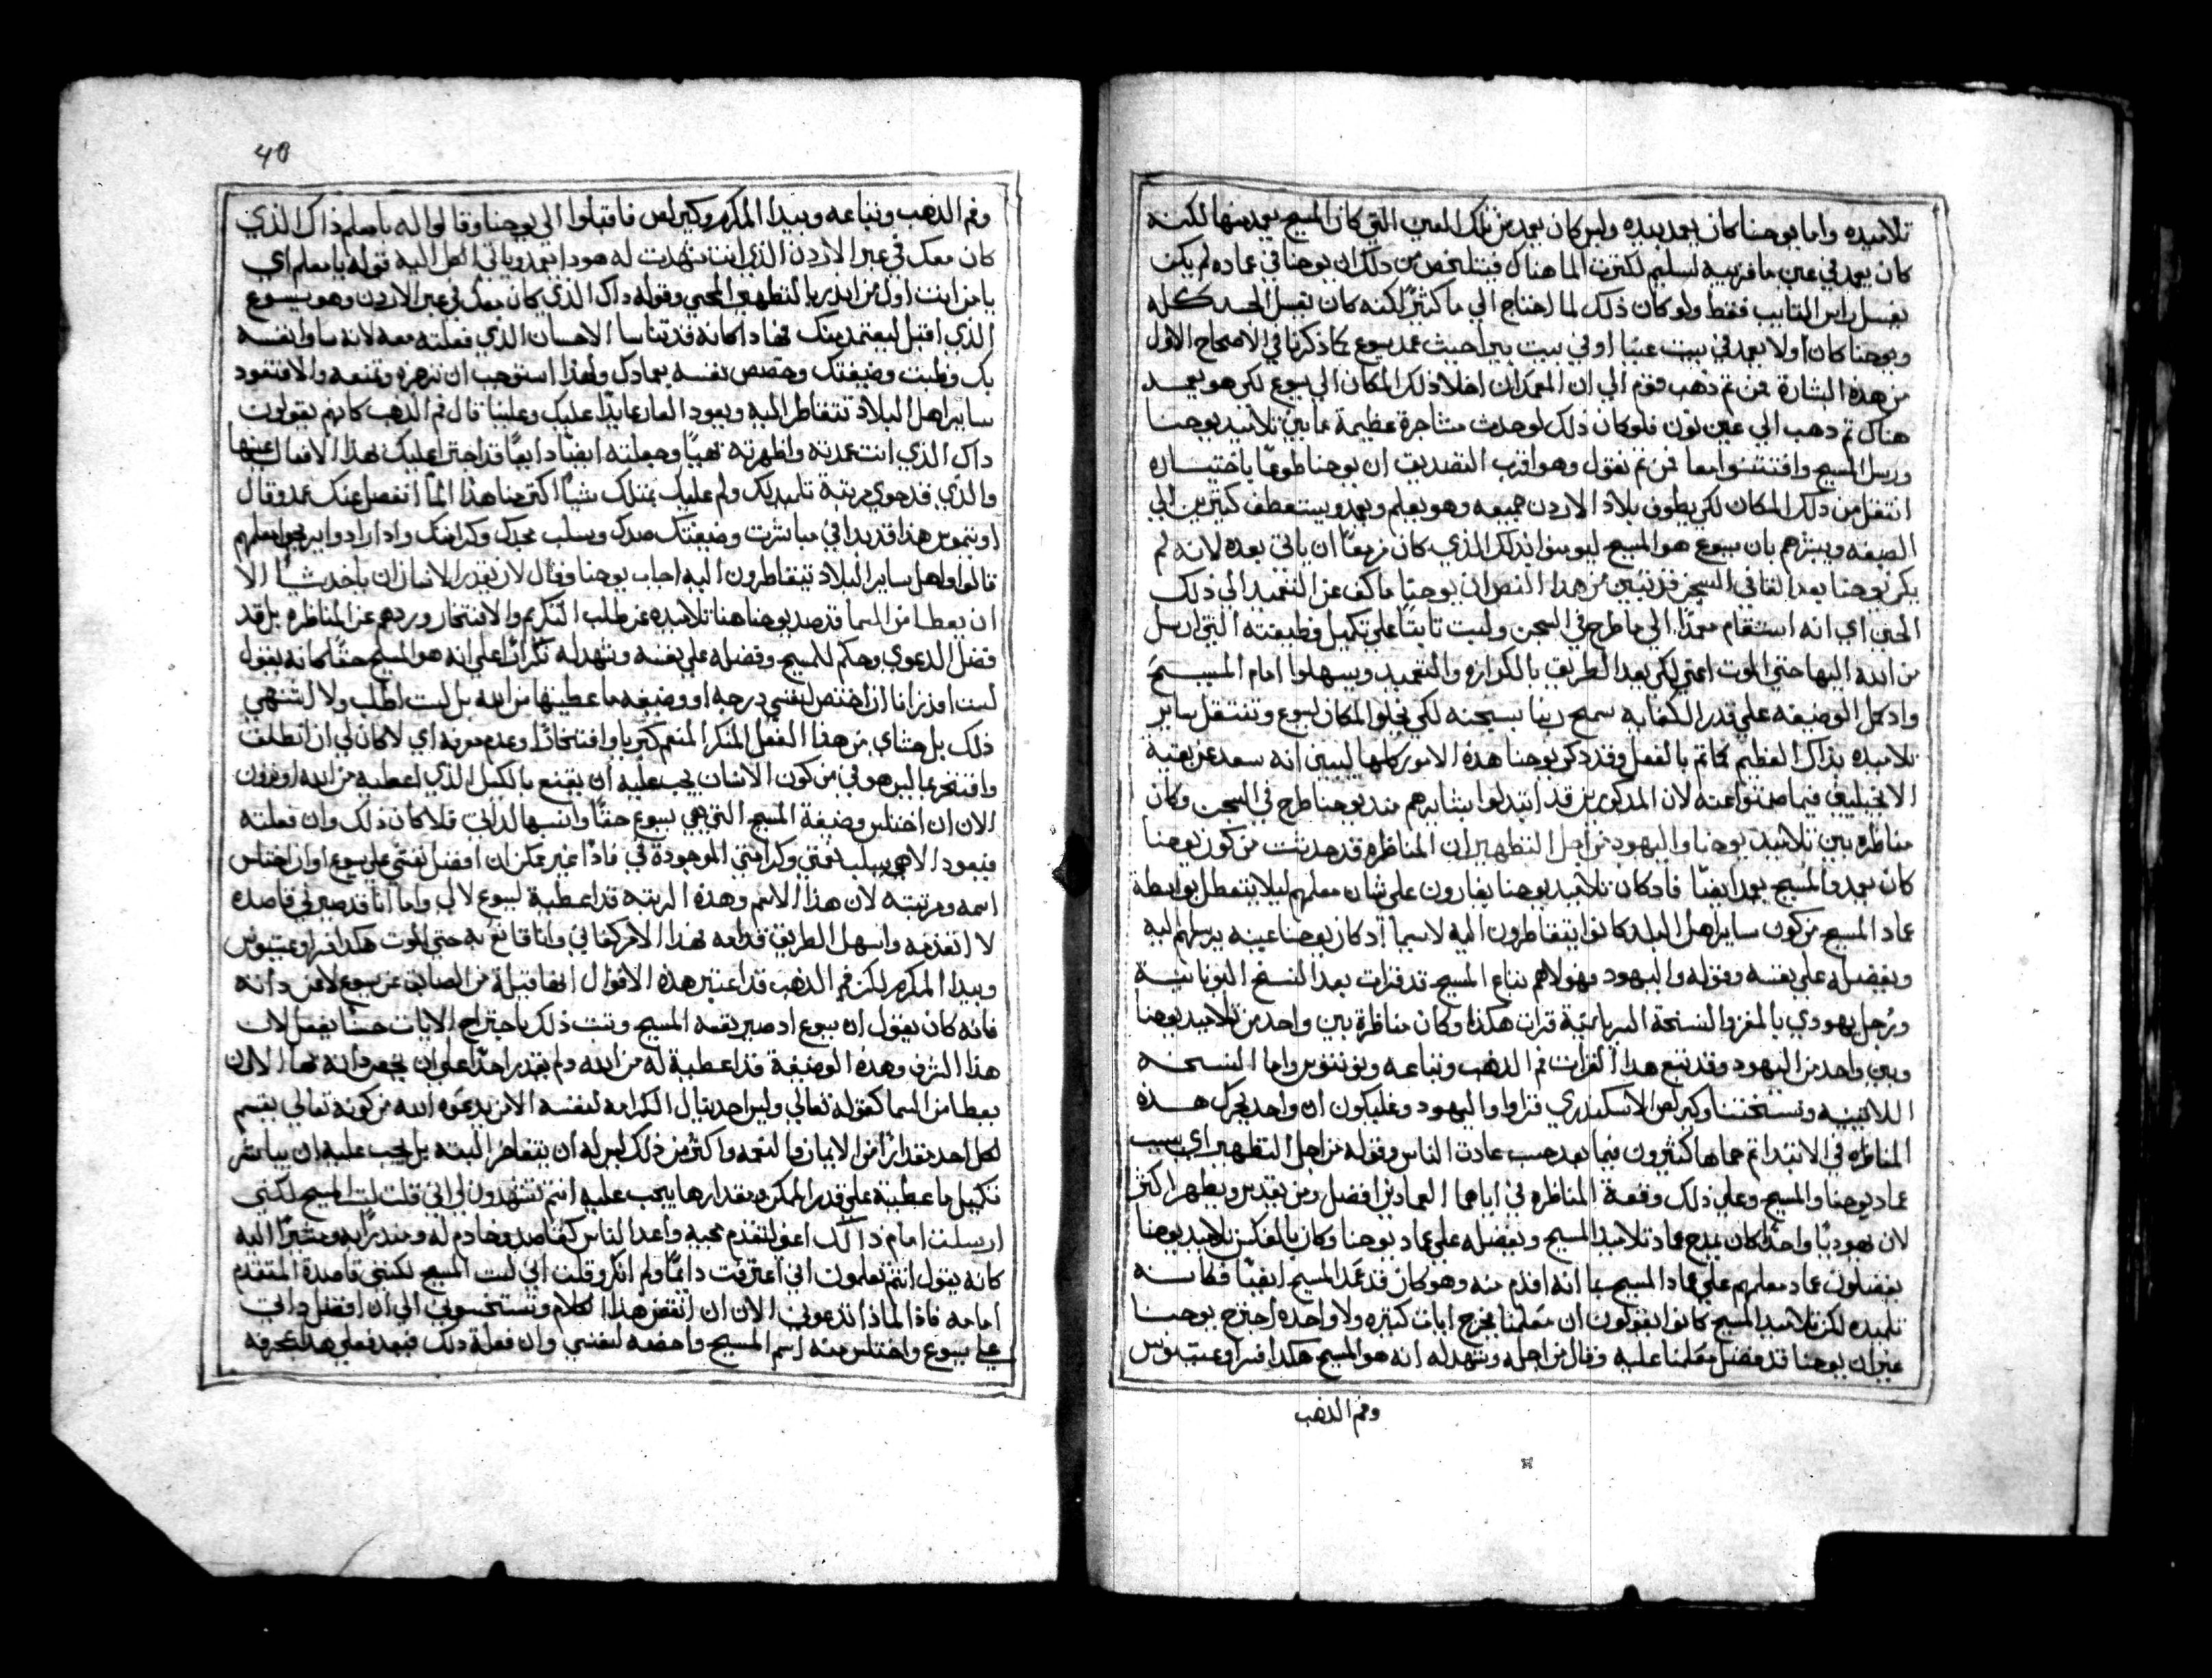 تلاميده واما يوحنا كان يعمد بيده وليس كان يعمد من تلك العين التي كان المسيح يعمد منها لكنه
كان يعمد في عين ما قريبه لسليم لكترت الما هناك فيتلخص من دلك ان يوحنا في عماده لم يكن
يغسل راس التايب فقط ولو كان ذلك لما احتاج الي ما كثير لكنه كان يغسل الجسد كله
ويوحنا كان اولا يعمد في بيت عنيا او في بيت بيرا حيث عمد يسوع كما ذكرنا في الاصحاح الاول
من هذه البشارة فمن تم ذهب قوم الي ان المعمدان اخلا دلك المكان الي يسوع لكي هو يعمد
هناك تم دهب الي عين نون فلو كان ذلك لوحدت مشاجرة عظيمة ما بين تلاميد يوحنا
ورسل المسيح وافتتنوا معا فمن تم نقول وهو اقرب التصديق ان يوحنا طوعًا باختياره
انتقل من دلك المكان لكي يطوف بلاد الاردن جميعه وهو يعلم ويعمد ويستعطف كتيرين الي
الصبغه ويبشرهم بان يسوع هو المسيح ليومنوا بدلك الذي كان مزمعًا ان ياتي بعده لانه لم
يكن يوحنا بعد القا في السجن فقد تبين من هدا النص ان يوحنا ما كف عن التعميد الي ذلك
الحين اي انه استقام معمدًا الي ما طرح في السجن ولبت تابتًا علي تكميل وظيفته التي ارسل
من الله اليها حتي الموت اعني لكي يعد الطريق بالكرازه والتعميد ويسهلوا امام المسيح
واد كمل الوضيفه علي قدر الكفايه سمح ربنا بسجنه لكي يخلو المكان ليسوع وتنتقل ساير
تلاميده بذاك العظيم كما تم بالفعل وقد دكر يوحنا هذه الامور كلها ليبين انه سعد عن بقية
الانجيليين فيما صنتوا عنه لان المدكورين قد ابتدلوا بشايرهم مند يوحنا طرح في السجن وكان
مناظره بين تلاميد يوحنا واليهود من اجل التطهير ان المناظره قد حدتت من كون يوحنا
كان يعمد والمسيح يعمد ايضًا فاد كان تلاميد يوحنا يغارون علي شان معلمهم ليلا يتعطل بواسطة
عماد المسيح من كون ساير اهل البلد كانوا يتقاطرون اليه لاسيما اد كان يوحنا عينه يرسلهم اليه
ويفضله علي نفسه وقوله واليهود فهولاهم تباع المسيح قد قرات بعد النسخ اليونانيه
ورجل يهودي بالمفرد والنسخة السريانية قرات هكذا وكان مناظرة بين واحد من تلاميد يوحنا
وبين واحد من اليهود وقد تبع هدا القرات فم الدهب وتباعه ونونتوس واما النسخه
اللاتينيه ونسختنا وكيرلس الاسكندري قراوا واليهود وغليكون ان واحد يحرك هده
المناظره في الابتدا تم حماها كثيرون فيما بعد حسب عادت الناس وقوله من اجل التطهير اي بسبب
عماد يوحنا والمسيح وعلي ذلك وقعة المناظره في اياهما العمادين افضل ومن يقدس ويطهر اكثر
لان يهوديًا واحدًا كان يمدح عماد تلاميد المسيح ويفضله علي عماد يوحنا وكان بالعكس تلاميد يوحنا
يفضلون عماد معلمهم علي عماد المسيح بما انه اقدم منه وهو كان قد عمد المسيح ايضًا فكانه
تلميده لكن تلاميد المسيح كانوا يقولون ان معلمنا يخرج ايات كتيره ولا واحده اجترح يوحنا
غير ان يوحنا قد فضل معلمنا عليه وقال من اجله وشهد له انه هو المسيح هكدا فسر اوغستينوس
وفم الدهب
40
وفم الدهب وتباعه وبيدا المكرم وكيرلس فاقبلوا الي يوحنا وقالوا له يا معلم ذاك الذي
كان معك في عبر الاردن الذي انت شهدت له هودا يعمد وياتي الكل اليه قوله يا معلم اي
يا من انت اول من ابدر بالتطهير المحيي وقوله داك الذي كان معك في عبر الاردن وهو يسوع
الذي اقبل ليعتمد منك فهادا كانه قد تناسا الاحسان الذي فعلته معه لانه ساوا نفسه
بك وظبت وضيفتك وخصص نفسه بعمادك ولهذا استوجب ان تزجره وتمنعه والا فتعود
ساير اهل البلاد تتقاطر اليه ويعود العار عايدًا عليك وعلينا قال فم الدهب كانهم يقولون
داك الذي انت عمدته واظهرته بهيًا وجعلته ايضًا دايعًا قد اجترا عليك بهدا الافعال عينها
والذي قد حوي مرتبة تلميدك ولم عليك يمتلك شيًا اكتر منا هذا لما انفصل عنك عمد وقال
اوتيموس هذا قد بدا في مباشرت وضيفتك ضدك ويسلب مجدك وكرامتك وادا رادوا يبرجوا معلمهم
قالوا واهل ساير البلاد يتقاطرون اليه اجاب يوحنا وقال لن يقدر الانسان ان ياخد شيًا الا
ان يعطا من السما قد صد يوحنا هنا تلاميده عن طلب التكريم والافتخار وردهم عن المناظره بل قد
فضل الدعوي وحكم للمسيح وفضله علي نفسه وشهد له تكرارًا علي انه هو المسيح حقًا كانه يقول
لست اقدر انا ان اختص لنفسي درجه او وضيفه ما عطيتها من الله بل لست اطلب ولا اشتهي
ذلك بل حشاي من هذا الفعل المنكر المفعم كبريا وافتخارًا وعدم معرفه اي لا كان لي ان اتطلب
وافتخر بما ليس هو في من كون الانسان يجب عليه ان يقنع بالكيل الذي اعطيه من الله او ترون
الان ان اختلس وضيفة المسيح التي هي يسوع حقًا وانسبها لداتي فلا كان ذلك وان فعلته
فيعود الاهي يسلب نعمتي وكرامتي الموجودة في فادًا غير ممكن ان افضل نفسي علي يسوع او ان اختلس
اسمه ومرتبته لان هدا الاسم وهذه الرتبه قد اعطية ليسوع لا لي واما انا قد صير لي قاصده
لاتقدمه واسهل الطريق قدامه فهذا الامر كفاني وانا قانع به حتي الموت هكدا فسر اوغستينوس
وبيدا المكرم لكن فم الدهب قد اعتبر هذه الاقوال انها قيلة من الصابغ عن يسوع لا عن داته
فانه كان يقول ان يسوع اد صير نفسه المسيح وتبت ذلك باجتراح الايات حسنًا يفعل لان
هذا الشرف وهده الوضيفة قد اعطية له من الله ولم يقدر احدًا علي ان يخصص داته بها الا ان
يعطا من السما كقوله تعالي وليس احد ينال الكرامه لنفسه الا من يدعوه الله من كونه تعالي يقسم
لكل احد مقدارًا من الايمان والنعمه واكثر من ذلك ليس له ان يتفاخر البته بل يجب عليه ان يباشر
تكميل ما عطيته علي قدر الممكن وبمقدار ما يجب عليه انتم تشهدون لي اني قلت لست المسيح لكنني
ارسلت امام داك اعني لاتقدم مجيه واعد الناس كقاصده وخادم له ومنذرًا به ومشيرًا اليه
كانه يقول انتم تعلمون اني اعترفت دايمًا ولم انكر وقلت اني لست المسيح لكنني قاصدة المتقدم
امامه فاذًا لماذا تدعوني الان ان انقض هذا الكلام وتستحسوني الي ان افضل داتي
علي يسوع واختلس منه اسم المسيح واخصه لنفسي وان فعلة دلك فيعد فعلي هدا عجرفه